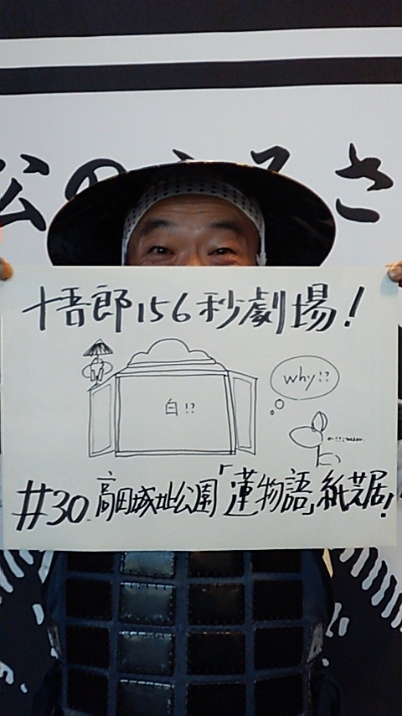 公のふるさ
悟郎156秒劇場!
白!?
Why!?
#30 高田城址公園「蓮物語」紙芝居!